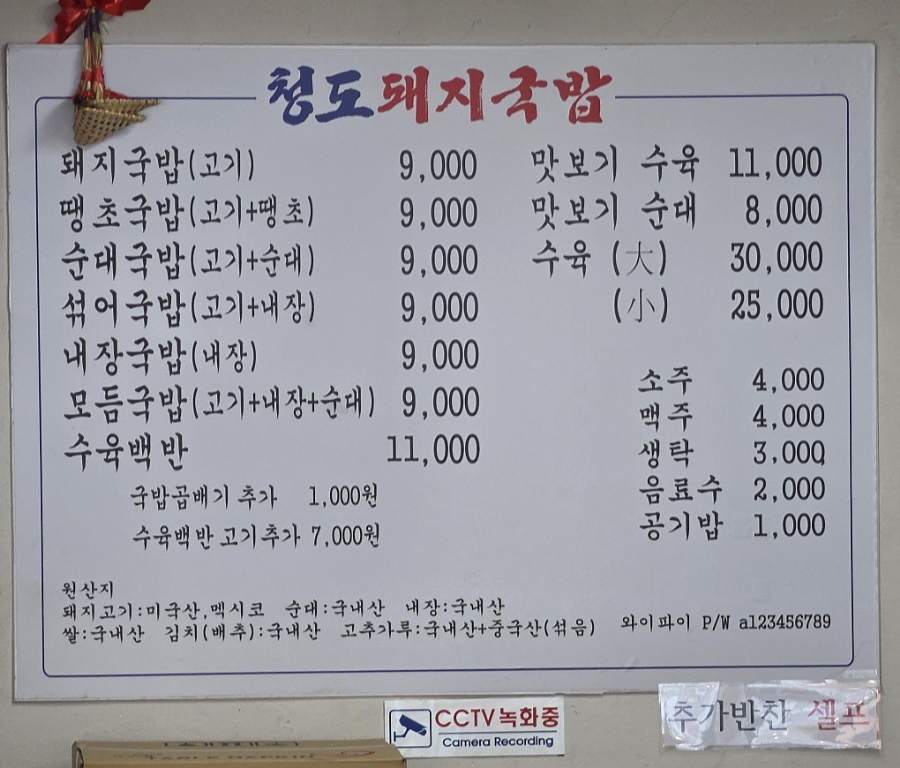 청도돼지국밥
돼지국밥(고기) 9,000
땡초국밥(고기+땡초) 9,000
순대국밥(고기+순대) 9,000
섞어국밥(고기+내장) 9,000
내장국밥(내장) 9,000
모듬국밥(고기+내장+순대) 9,000
수육백반 11,000
국밥곱배기 추가 1,000원
수육백반 고기추가 7,000원
맛보기 수육 11,000
맛보기 순대 8,000
수육 (大) 30,000
(小) 25,000
소주 4,000
맥주 4,000
생탁 3,000
음료수 2,000
공기밥 1,000
원산지
돼지고기:미국산,멕시코 순대:국내산 내장:국내산
쌀:국내산 김치(배추):국내산 고추가루:국내산+중국산(섞음)
와이파이 P/W a123456789
CCTV 녹화중
Camera Recording
추가반찬 셀프